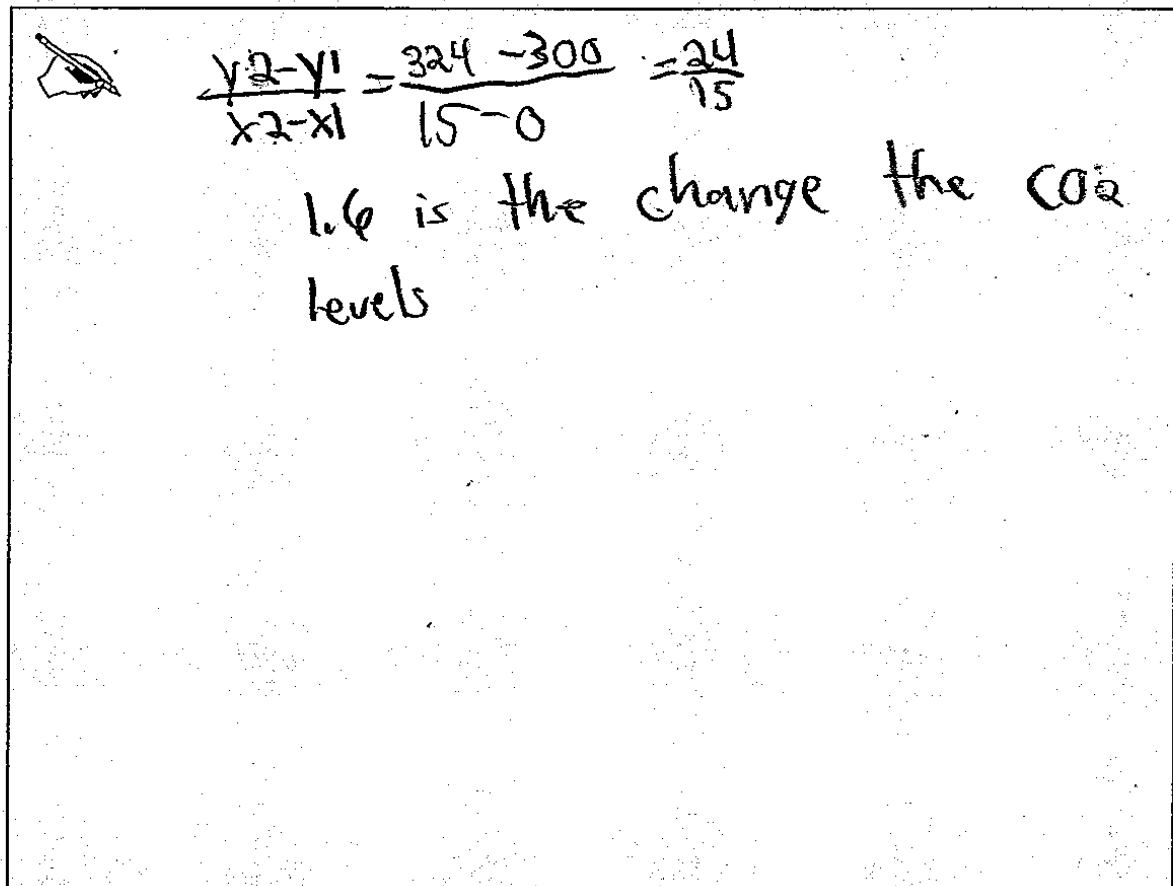 y2-y1 / x2-x1 = 324 - 300 / 15 - 0 = 24 / 15
1.6 is the change the CO2
levels